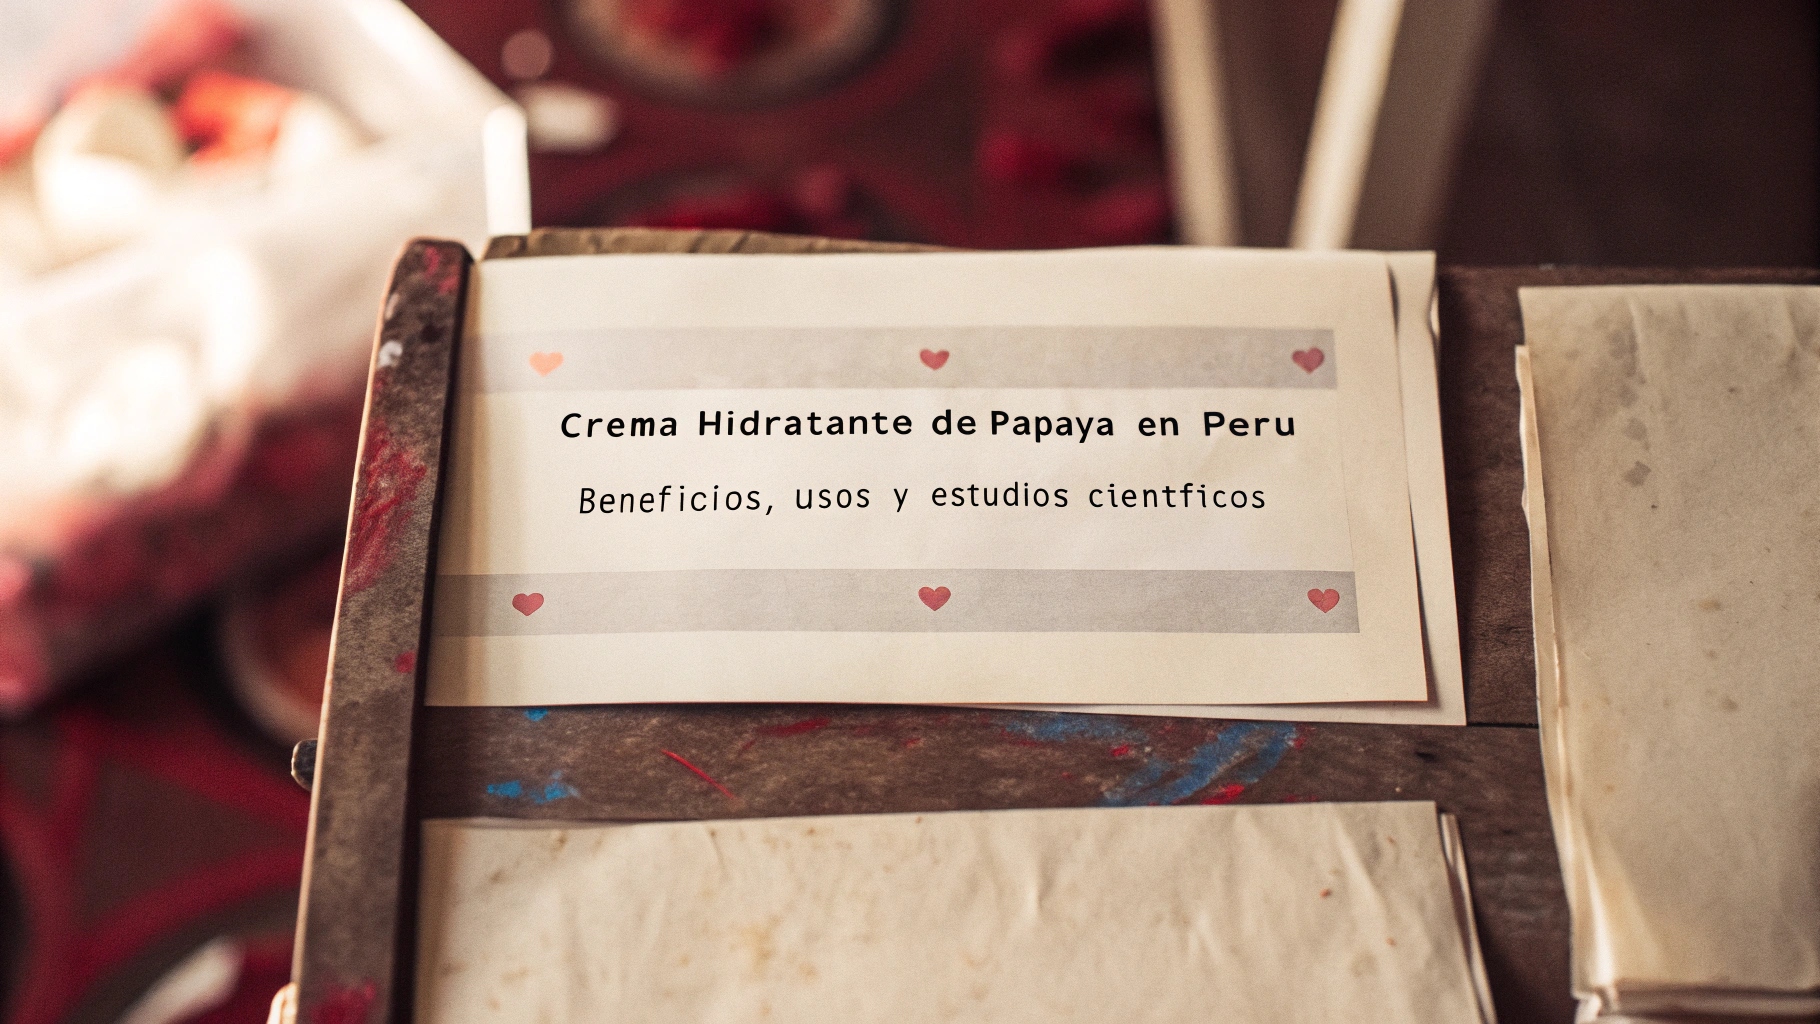 Crema Hidratante de Papaya en Peru
Beneficios, usos y estudios cientficos